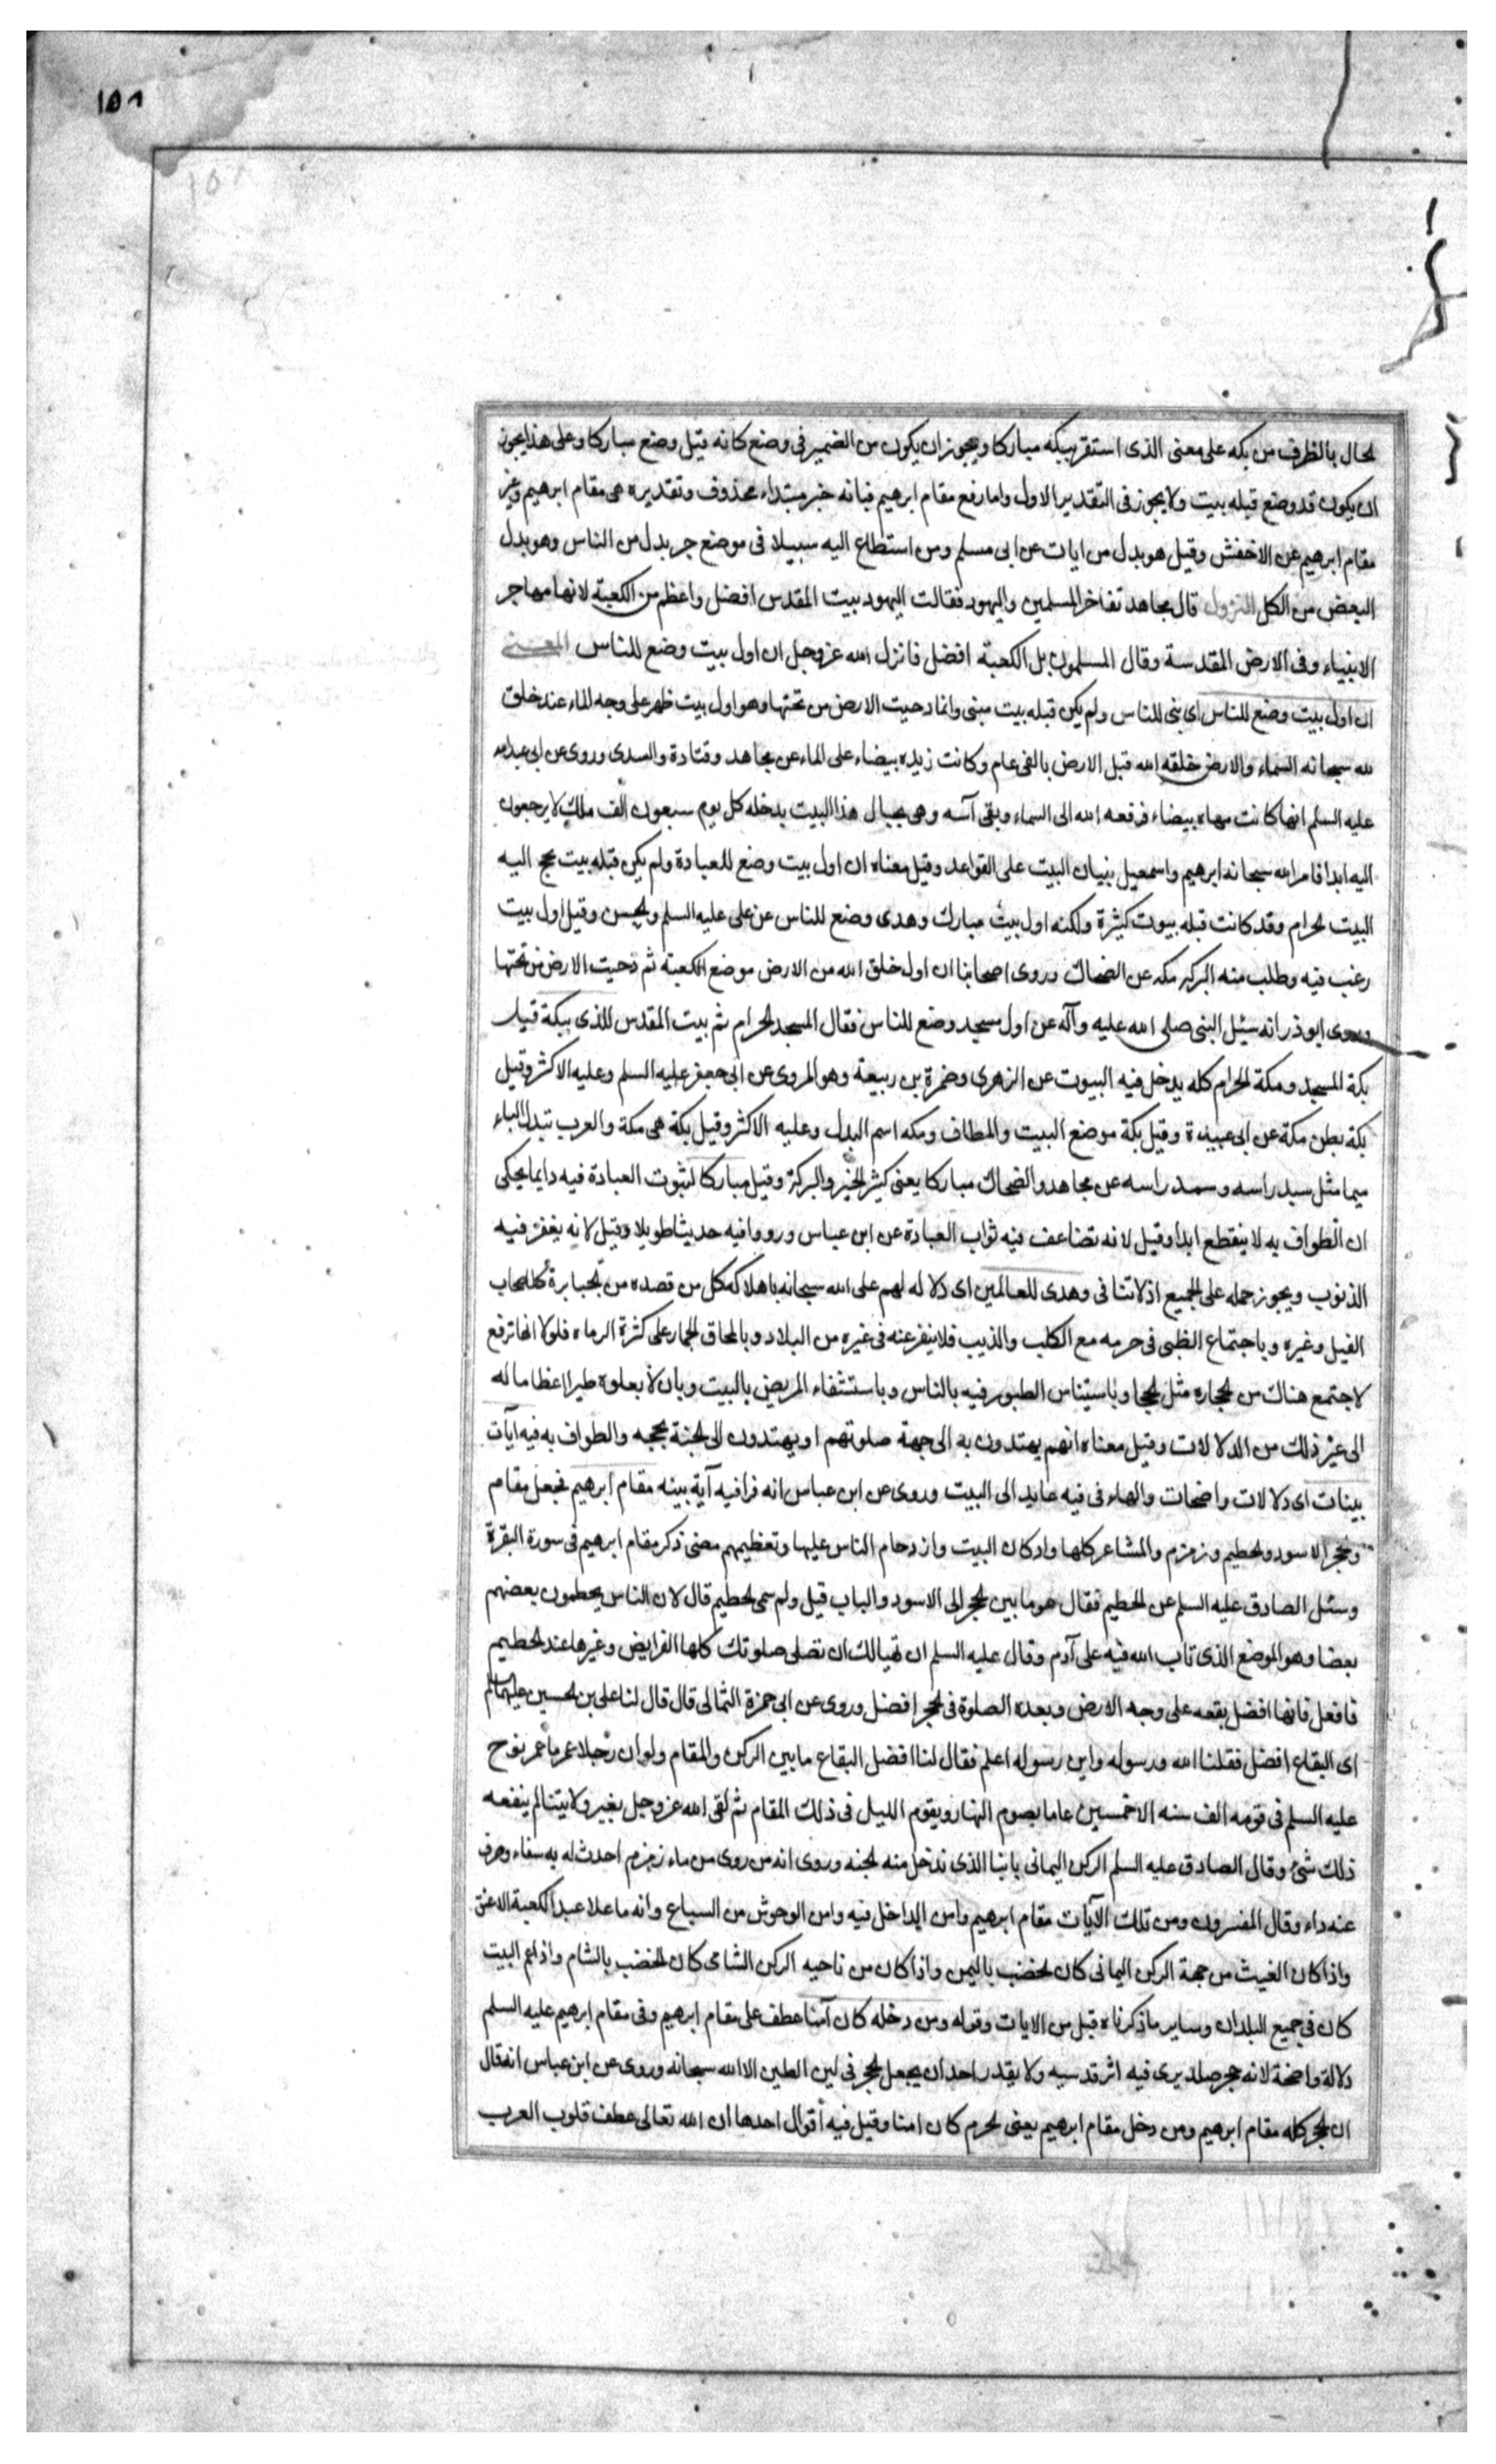 ١٥٨
لحال بالظرف من بكه على معنى الذى استقر ببكه مباركا ويجوز ان يكون من الضمير فى وضع كانه قيل وضع مباركا وعلى هذا يجوز
ان يكون قد وضع قبله بيت ولا يجوز فى التقدير الاول واما رفع مقام ابرهيم فبانه خبر مبتداء محذوف وتقديره هى مقام ابرهيم وغير
مقام ابرهيم عن الاخفش وقيل هو بدل من ايات عن ابى مسلم ومن استطاع اليه سبيلا فى موضع جر بدل من الناس وهو بدل
البعض من الكل النزول قال مجاهد تفاخر المسلمين واليهود فقالت اليهود بيت المقدس افضل واعظم من الكعبة لانها مهاجر
الانبياء وفى الارض المقدسة وقال المسلمون بل الكعبة افضل فانزل الله عز وجل ان اول بيت وضع للناس المعنى
ان اول بيت وضع للناس اى بنى للناس ولم يكن قبله بيت مبنى وانما دحيت الارض من تحتها وهو اول بيت ظهر على وجه الماء عند خلق
لله سبحانه السماء والارض خلقه الله قبل الارض بالفى عام وكانت زبده بيضاء على الماء عن مجاهد وقتادة والسدى وروى عن ابى عبدالله
عليه السلم انها كانت مهاه بيضاء فرفعه الله الى السماء وبقى آسه وهى بحبال هذا البيت يدخله كل يوم سبعون الف ملك لا يرجعون
اليه ابدا فامر الله سبحانه ابرهيم واسمعيل ببنيان البيت على القواعد وقيل معناه ان اول بيت وضع للعبادة ولم يكن قبله بيت يحج اليه
البيت لحرام وقد كانت قبله بيوت كثيرة ولكنه اول بيت مبارك وهدى وضع للناس عن على عليه السلم ولحسن وقيل اول بيت
رغب فيه وطلب منه البركه مكه عن الضحاك وروى اصحابنا ان اول خلق الله من الارض موضع الكعبة ثم دحيت الارض من تحتها
وروى ابوذر انه سئل النبى صلى الله عليه وآله عن اول مسجد وضع للناس فقال المسجد لحرام ثم بيت المقدس للذى ببكة قيل
بكة المسجد ومكة لحرام كله يدخل فيه البيوت عن الزهرى وضمرة بن ربيعة وهو المروى عن ابى جعفر عليه السلم وعليه الاكثر وقيل
بكة بطن مكة عن ابى عبيدة وقيل بكة موضع البيت والمطاف ومكه اسم البدل وعليه الاكثر وقيل بكة هى مكة والعرب تبدل الباء
ميما مثل سبد راسه وسمد راسه عن مجاهد والضحاك مباركا يعنى كثير لخير والبركة وقيل مباركا لثبوت العبادة فيه دايما يحكى
ان الطواف به لا ينقطع ابدا وقيل لانه تضاعف فيه ثواب العبادة عن ابن عباس ورووا فيه حديثا طويلا وقيل لانه يغفر فيه
الذنوب ويجوز حمله على لجميع اذ لا تنافى وهدى للعالمين اى دلاله لهم على الله سبحانه باهلاكه كل من قصده من لجبابرة كاصحاب
الفيل وغيره وباجتماع الظبى فى حرمه مع الكلب والذيب فلا ينفر عنه فى غيره من البلاد وبالمحاق لجمار على كثرة الرماه فلولا انها ترفع
لاجتمع هناك من لحجاره مثل لجبا وباستيناس الطيور فيه بالناس وباستشفاء المريض بالبيت وبان لا يعلوه طير اعظاما له
الى غير ذلك من الدلالات وقيل معناه انهم يهتدون به الى جهة صلوتهم او يهتدون الى لجنة بحجه والطواف به فيه آيات
بينات اى دلالات واضحات والهاء فى فيه عايد الى البيت وروى عن ابن عباس انه قرا فيه آية بينه مقام ابرهيم فجعل مقام
ولحجر الاسود ولحطيم وزمزم والمشاعر كلها واركان البيت وازدحام الناس عليها وتعظيمهم مضى ذكر مقام ابرهيم فى سورة البقرة
وسئل الصادق عليه السلم عن لحطيم فقال هو ما بين لحجر الى الاسود والباب قيل ولم سمى لحطيم قال لان الناس يحطمون بعضهم
بعضا وهو الموضع الذى تاب الله فيه على آدم وقال عليه السلم ان تهيا لك ان تصلى صلوتك كلها الفرايض وغيرها عند لحطيم
فافعل فانها افضل بقعه على وجه الارض وبعده الصلوة فى لحجر افضل وروى عن ابى حمزة الثمالى قال قال لنا على بن لحسين عليهما السلم
اى البقاع افضل فقلنا الله ورسوله وابن رسوله اعلم فقال لنا افضل البقاع ما بين الركن والمقام ولو ان رجلا عمر ما عمر نوح
عليه السلم فى قومه الف سنه الا خمسين عاما يصوم النهار ويقوم الليل فى ذلك المقام ثم لقى الله عز وجل بغير ولايتنا لم ينفعه
ذلك شئ وقال الصادق عليه السلم الركن اليمانى بابنا الذى ندخل منه لجنه وروى انه من روى من ماء زمزم احدث له به شفاء وصرف
عنه داء وقال المفسرون ومن تلك الآيات مقام ابرهيم وامن الداخل فيه وامن الوحوش من السباع وانه ما علا عبد الكعبة الا عتق
واذا كان الغيث من جهة الركن اليمانى كان لخضب باليمن واذا كان من ناحيه الركن الشامى كان لخضب بالشام واذا عم البيت
كان فى جميع البلدان وساير ما ذكرناه قبل من الايات وقوله ومن دخله كان آمنا عطف على مقام ابرهيم وفى مقام ابرهيم عليه السلم
دلالة واضحة لانه حجر صلد يرى فيه اثر قدميه ولا يقدر احد ان يجعل لحجر فى لين الطين الا الله سبحانه وروى عن ابن عباس انه قال
ان لحجر كله مقام ابرهيم ومن دخل مقام ابرهيم يعنى لحرم كان امنا وقيل فيه أقوال احدها ان الله تعالى عطف قلوب العرب